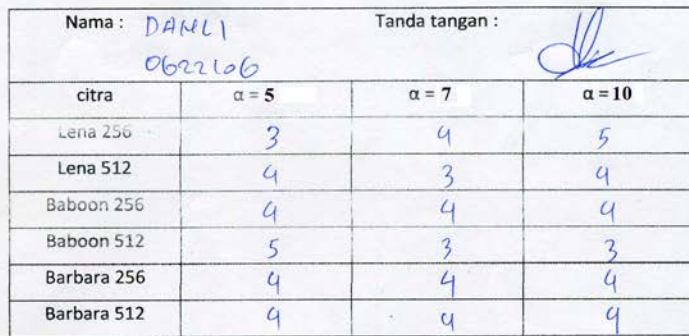 Nama : DAHLI Tanda tangan :
0622106
citra α = 5 α = 7 α = 10
Lena 256 3 4 5
Lena 512 4 3 4
Baboon 256 4 4 4
Baboon 512 5 3 3
Barbara 256 4 4 4
Barbara 512 4 4 4